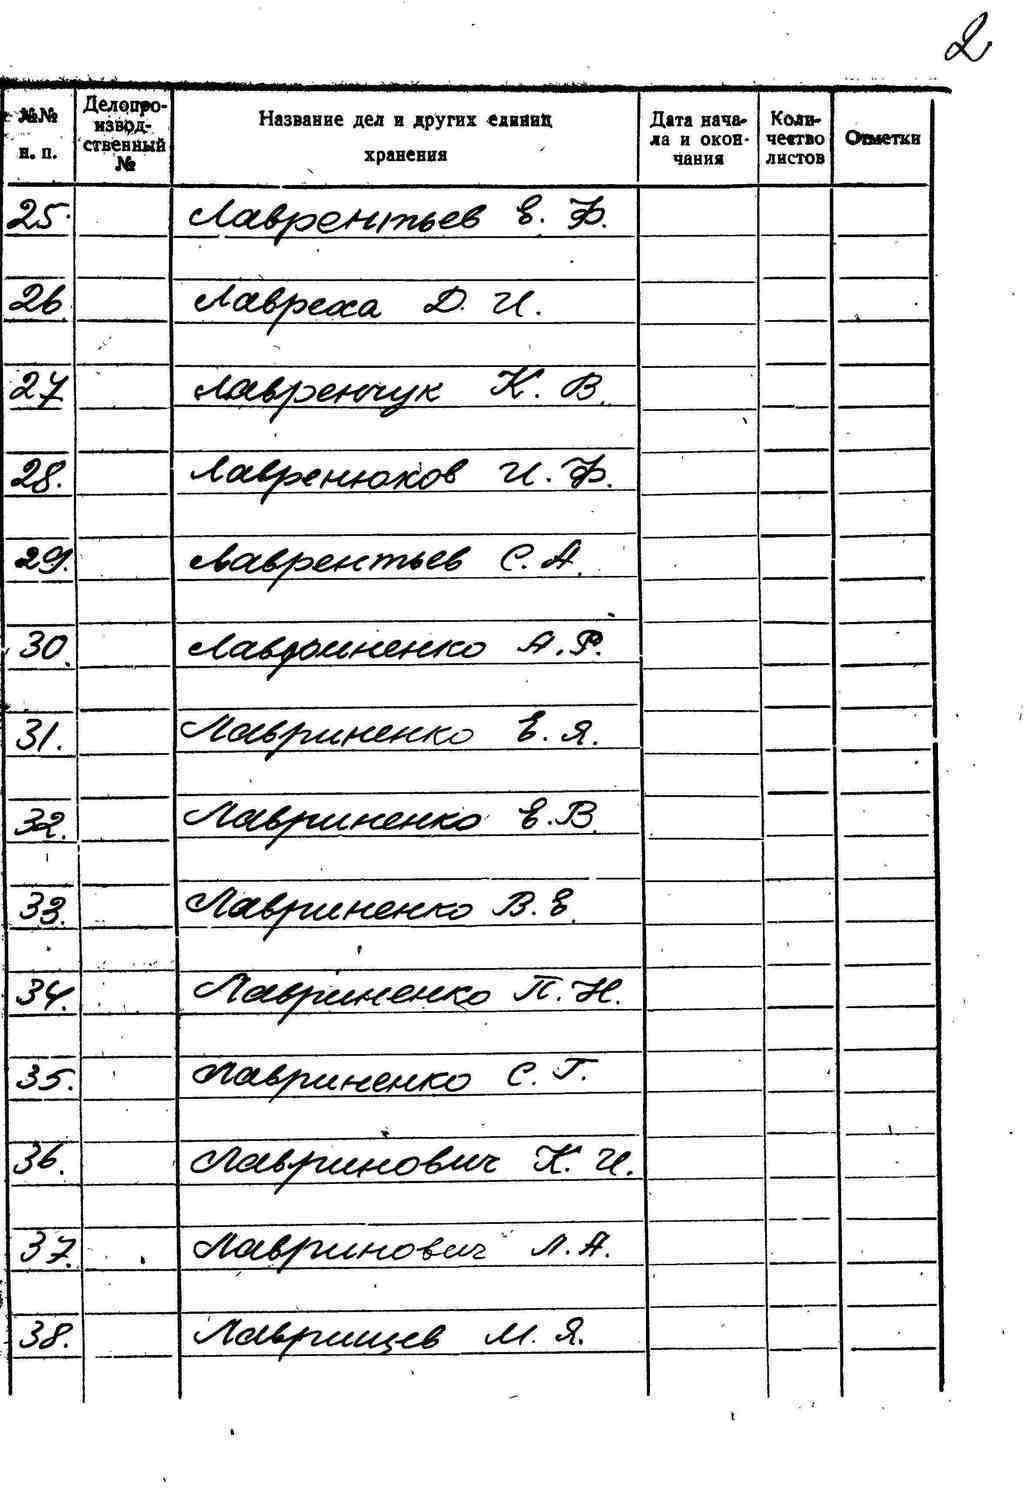 2
№№ н. п. Делопроизводственный № Название дел и других единиц хранения Дата начала и окончания Количество листов Отметки
25. Лаврентьев Е. Ф.
26. Лавреха Д. И.
27. Лавренчук К. В.
28. Лавренюков И. Ф.
29. Лаврентьев С. А.
30. Лавриненко А. Р.
31. Лавриненко Е. Я.
32. Лавриненко Е. В.
33. Лавриненко В. Е.
34. Лавриненко П. Н.
35. Лавриненко С. Г.
36. Лавринович К. И.
37. Лавринович Л. А.
38. Лаврищев М. Я.